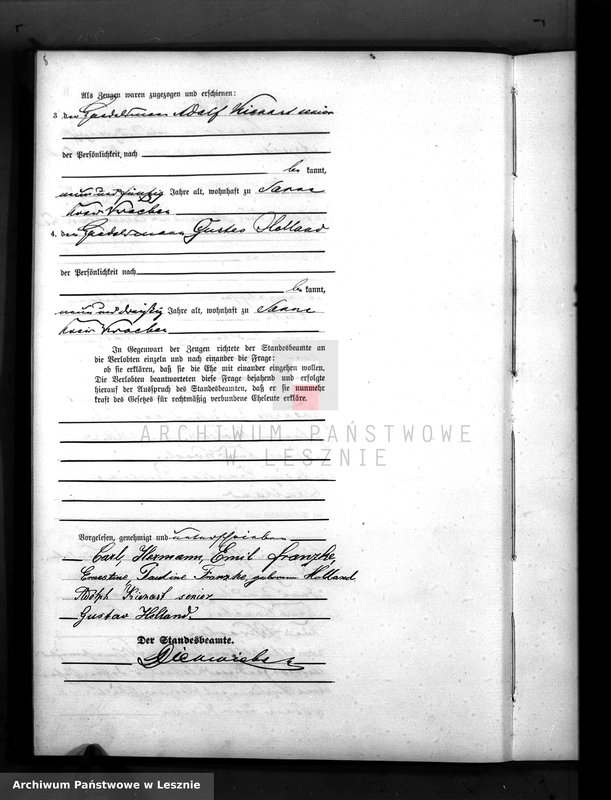 8
Als Zeugen waren zugezogen und erschienen:
3 den Handelsmann Adolf Kienast senior
der Persönlichkeit, nach
be kannt,
neun und fünfzig Jahre alt, wohnhaft zu Sarne
Kreis Kroeben
4. den Handelsmann Gustav Holland
der Persönlichkeit nach
be kannt,
neun und dreißig Jahre alt, wohnhaft zu Sarne
Kreis Kroeben
In Gegenwart der Zeugen richtete der Standesbeamte an
die Verlobten einzeln und nach einander die Frage:
ob sie erklären, daß sie die Ehe mit einander eingehen wollen.
Die Verlobten beantworteten diese Frage bejahend und erfolgte
hierauf der Ausspruch des Standesbeamten, daß er sie nunmehr
kraft des Gesetzes für rechtmäßig verbundene Eheleute erkläre.
ARCHIWUM PAŃSTWOWE
W LESZNIE
Vorgelesen, genehmigt und unterschrieben
Carl, Hermann, Emil Franzke
Ernestine, Pauline Franzke, geborene Holland
Adolph Kienast senior
Gustav Holland.
Der Standesbeamte.
Archiwum Państwowe w Lesznie